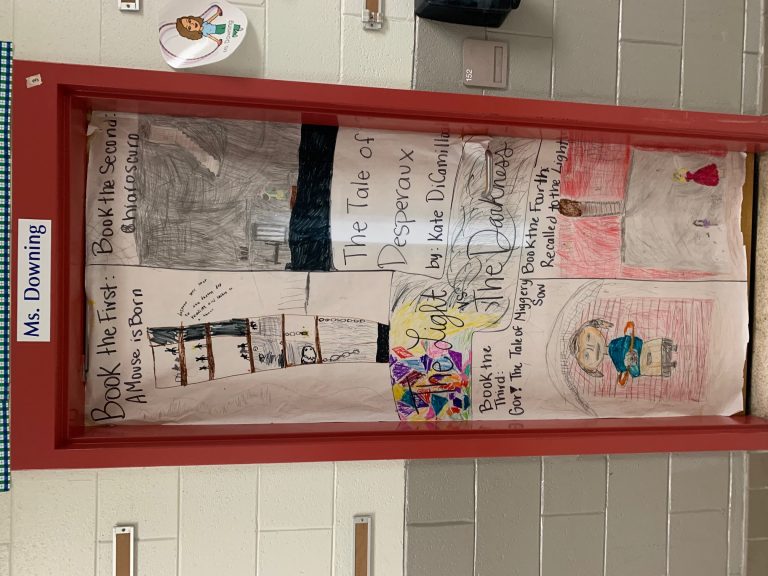 Ms. Downing
Book the First:
A Mouse is Born
Book the Second:
Chiaroscuro
The Tale of
Desperaux
by: Kate DiCamillo
The Light
vs
The Darkness
Book the
Third:
Gor! The Tale of Miggery
Sow
Book the Fourth
Recalled to the Light
152
Ms Downing